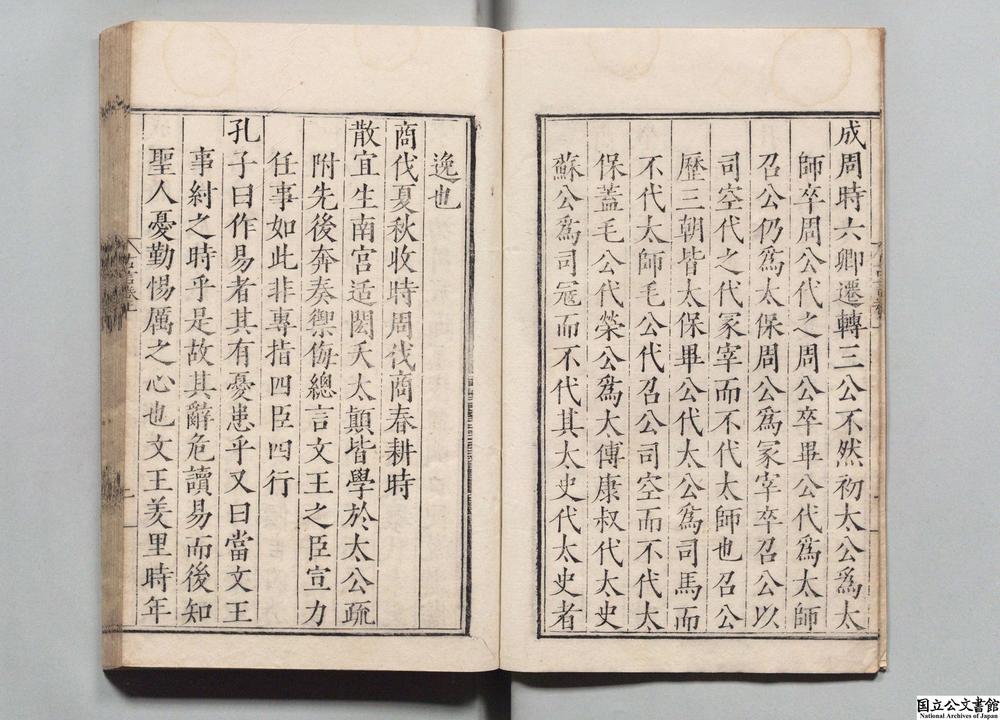 成周時六卿遷轉三公不然初太公爲太
師卒周公代之周公卒畢公代爲太師
召公仍爲太保周公爲冢宰卒召公以
司空代之代冢宰而不代太師也召公
歷三朝皆太保畢公代太公爲司馬而
不代太師毛公代召公司空而不代太
保蓋毛公代榮公爲太傅康叔代太史
蘇公爲司冦而不代其太史代太史者
逸也
商伐夏秋收時周伐商春耕時
散宜生南宫适閎夭太顛皆學於太公疏
附先後奔奏禦侮總言文王之臣宣力
任事如此非專指四臣四行
孔子曰作易者其有憂患乎又曰當文王
事紂之時乎是故其辭危讀易而後知
聖人憂勤惕厲之心也文王羑里時年
国立公文書館
National Archives of Japan